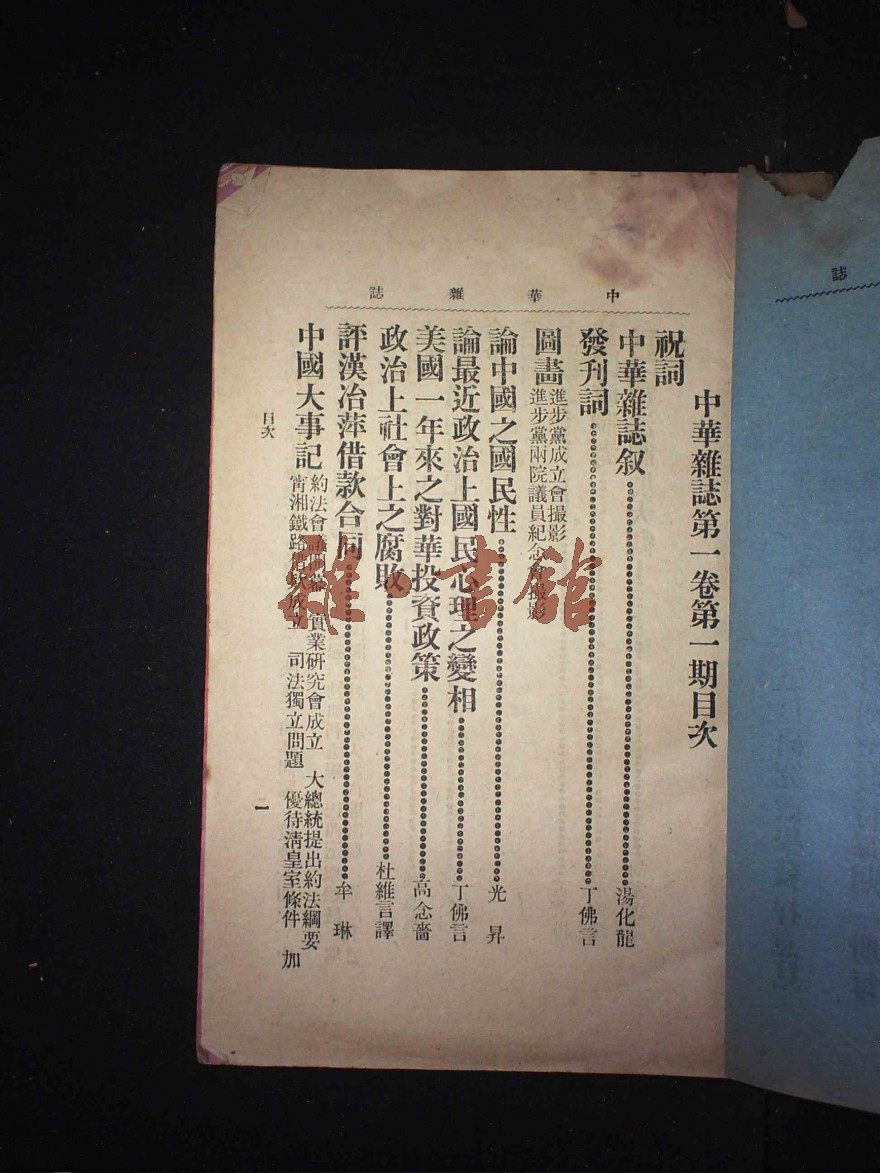 中華雜誌
中華雜誌第一卷第一期目次
祝詞
中華雜誌叙 湯化龍
發刊詞 丁佛言
圖畫 進步黨成立會撮影
進步黨兩院議員紀念會撮影
論中國之國民性 光昇
論最近政治上國民心理之變相 丁佛言
美國一年來之對華投資政策 高念嗇
政治上社會上之腐敗 杜維言譯
評漢冶萍借款合同 牟琳
中國大事記 約法會議開幕 實業研究會成立 大總統提出約法綱要
甯湘鐵路借款成立 司法獨立問題 優待淸皇室條件 加
目次
一
誌
雜·書館